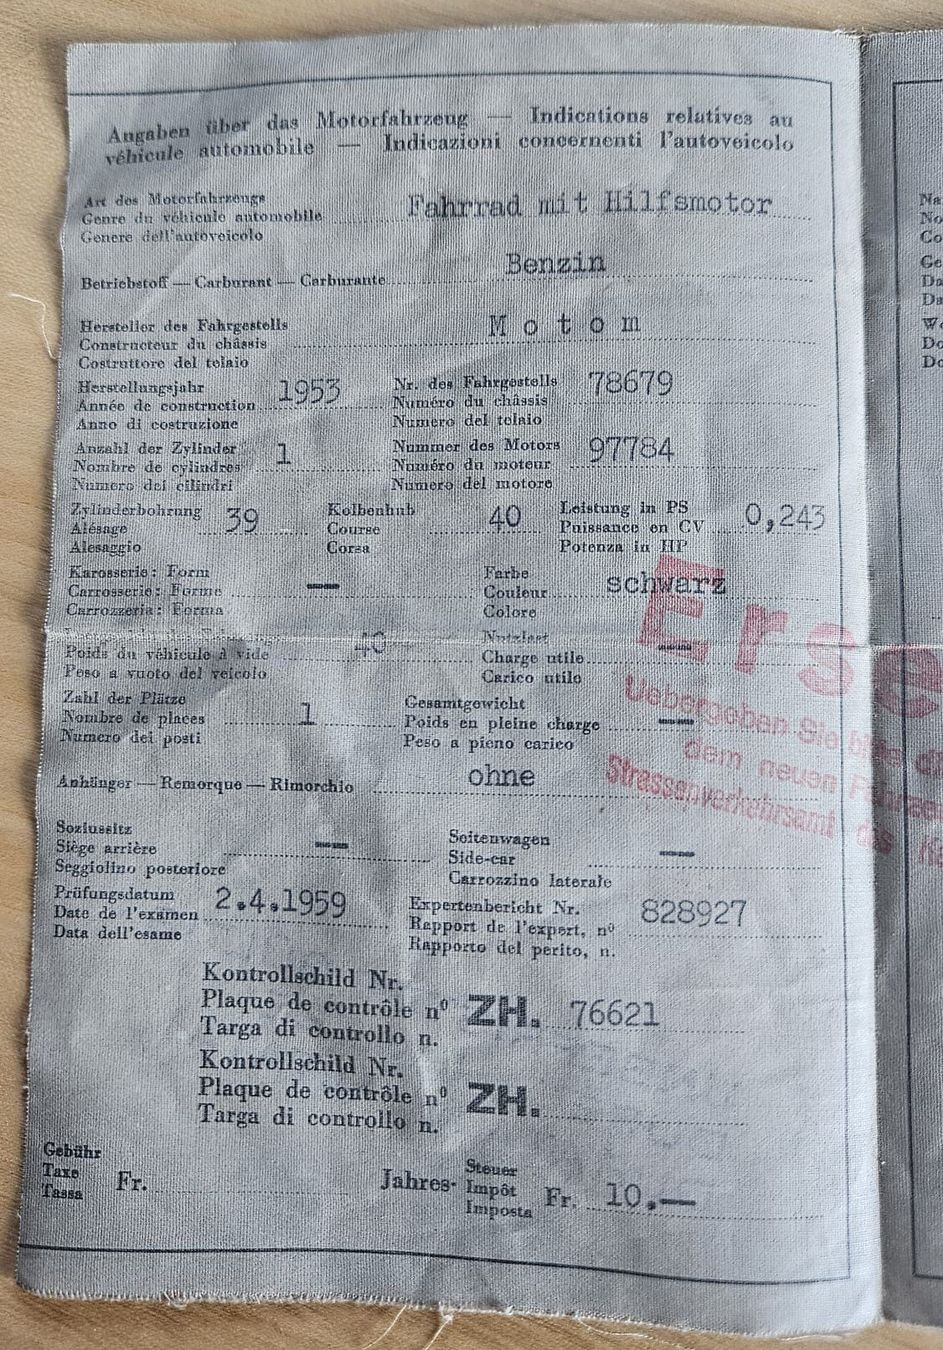 Angaben über das Motorfahrzeug — Indications relatives au
véhicule automobile — Indicazioni concernenti l'autoveicolo
Art des Motorfahrzeugs
Genre du véhicule automobile Fahrrad mit Hilfsmotor
Genere dell'autoveicolo
Betriebstoff — Carburant — Carburante Benzin
Hersteller des Fahrgestells
Constructeur du châssis Motom
Costruttore del telaio
Herstellungsjahr 1953 Nr. des Fahrgestells 78679
Année de construction Numéro du châssis
Anno di costruzione Numero del telaio
Anzahl der Zylinder 1 Nummer des Motors 97784
Nombre de cylindres Numéro du moteur
Numero dei cilindri Numero del motore
Zylinderbohrung 39 Kolbenhub 40 Leistung in PS 0,243
Alésage Course Puissance en CV
Alesaggio Corsa Potenza in HP
Karosserie: Form Farbe
Carrosserie: Forme — Couleur schwarz
Carrozzeria: Forma Colore
Nutzlast
Poids du véhicule à vide 40 Charge utile —
Peso a vuoto del veicolo Carico utile
Zahl der Plätze Gesamtgewicht
Nombre de places 1 Poids en pleine charge —
Numero dei posti Peso a pieno carico
Anhänger — Remorque — Rimorchio ohne
Soziussitz Seitenwagen
Siège arrière — Side-car —
Seggiolino posteriore Carrozzino laterale
Prüfungsdatum 2.4.1959 Expertenbericht Nr. 828927
Date de l'examen Rapport de l'expert, nº
Data dell'esame Rapporto del perito, n.
Kontrollschild Nr.
Plaque de contrôle nº ZH. 76621
Targa di controllo n.
Kontrollschild Nr.
Plaque de contrôle nº ZH.
Targa di controllo n.
Gebühr Steuer
Taxe Fr. Jahres- Impôt Fr. 10.—
Tassa Imposta
Erse
Uebergeben Sie
dem neuen
Strassenverkehrsamt
Na
No
Co
Ge
Da
Da
Wo
Do
Do